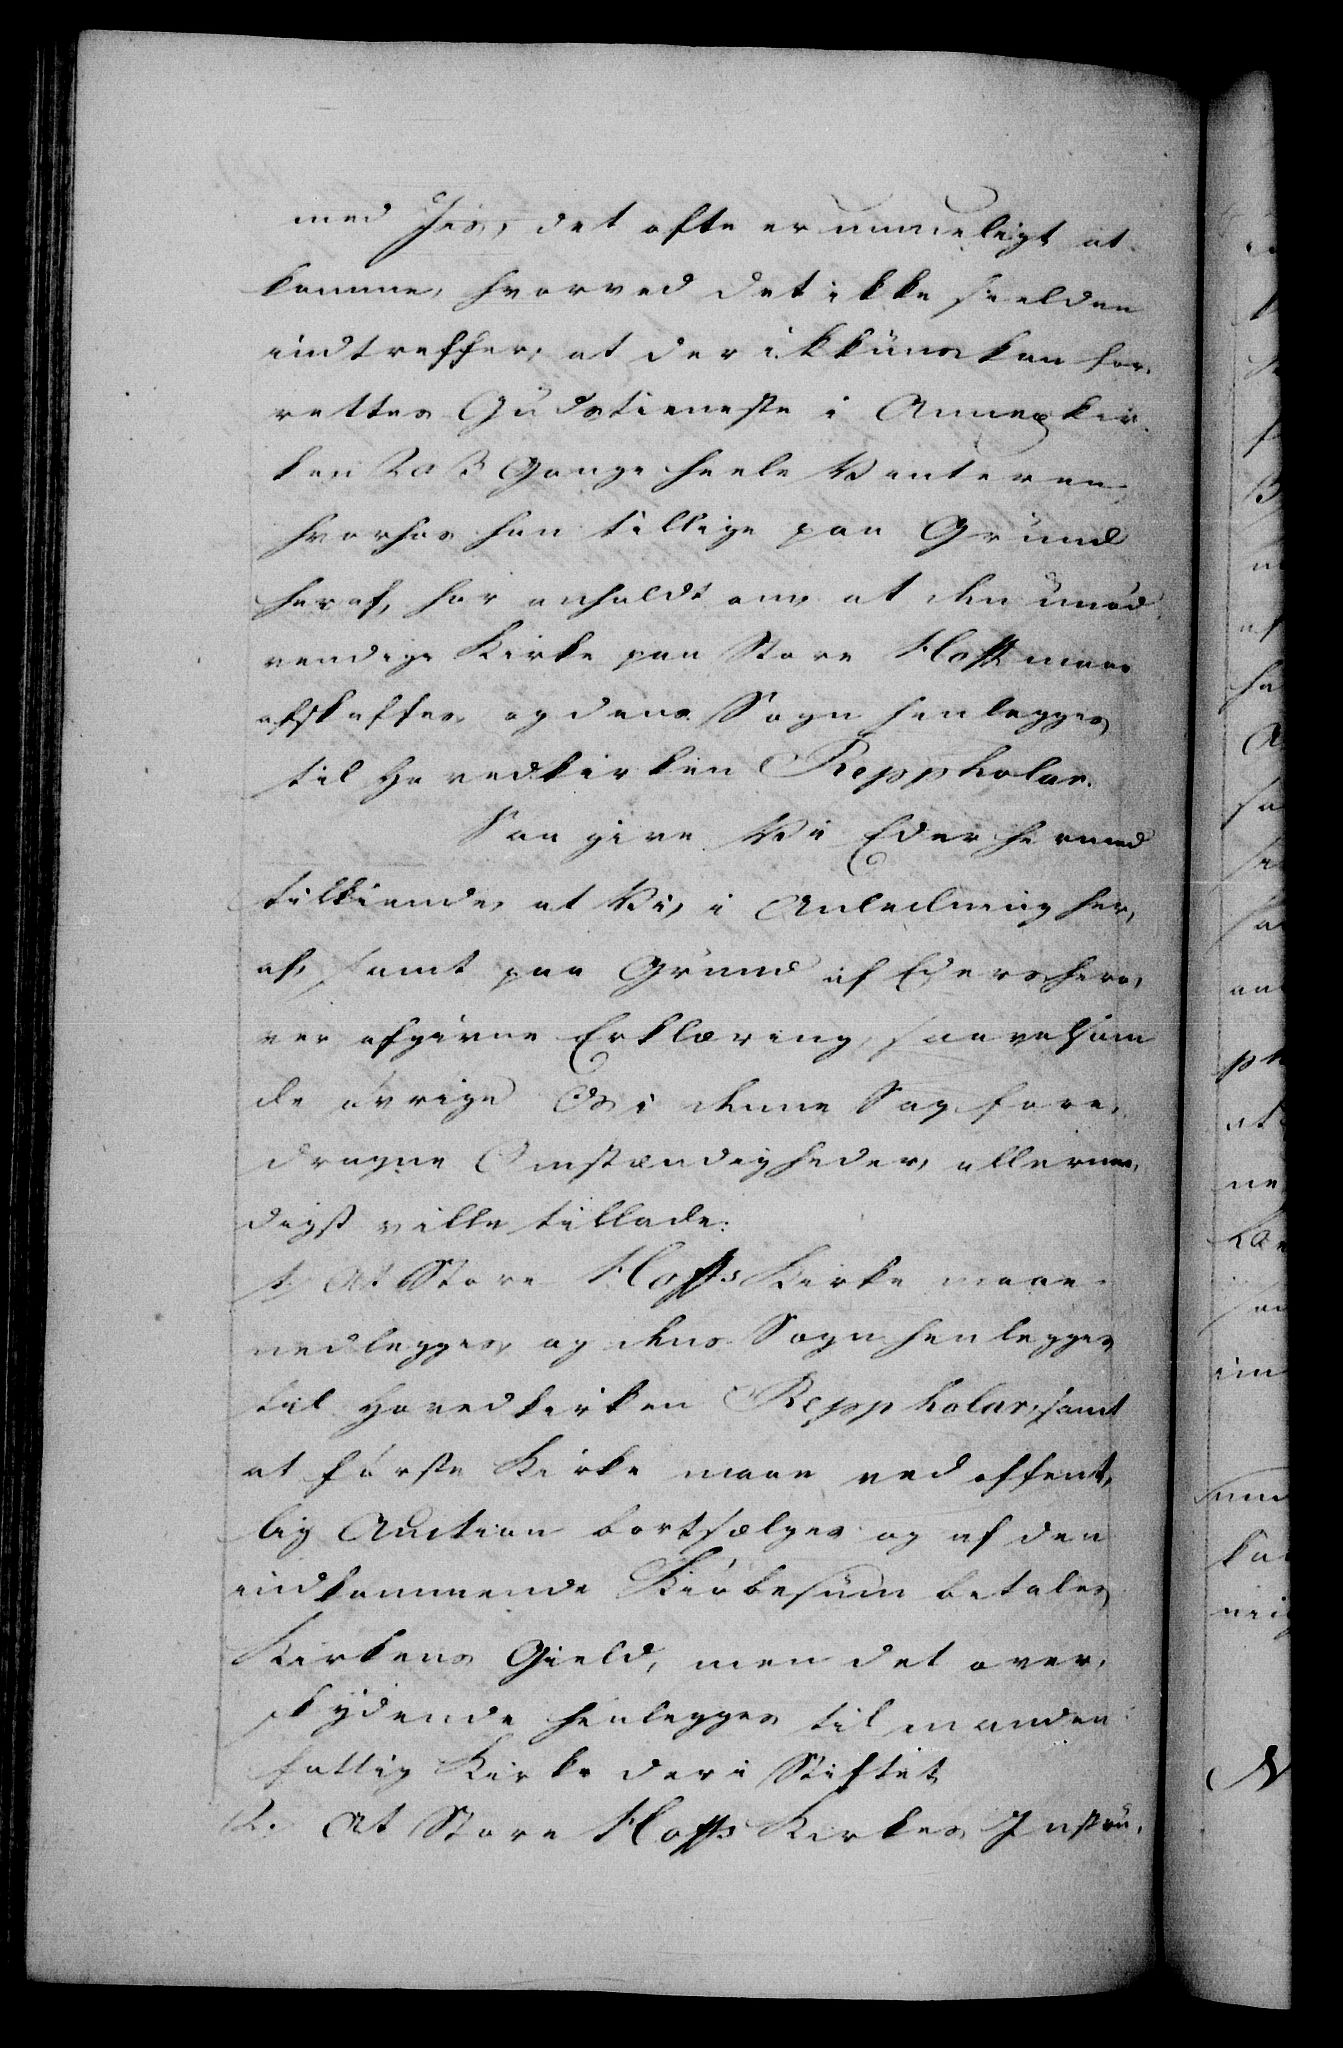 med Iis, det ofte er umueligt at
komme, hvorved det ikke sielden
indtreffer, at der ikkuns kan for-
rettes Gudstieneste i Annexkir-
ken 2 a 3 Gange heele Vinteren,
hvorhos han tillige paa Grund
heraf, har anholdt om, at den unød-
vendige Kirke paa Store Hoff maae
afskaffes og dens Sogn henlegges
til Hovedkirken Reppholar.
Saa give Vi Eder hermed
tilkiende, at Vi, i Anledning her-
af, samt paa Grund af Eders her-
over afgivne Erklæring, saavelsom
de øvrige Os i denne Sag fore-
dragne Omstændigheder, allernaa-
digst ville tillade:
1. At Store Hoffs Kirke maae
nedlegges, og dens Sogn henlegges
til Hovedkirken Reppholar, samt
at første Kirke maae ved offent-
lig Auction bortsælges og af den
indkommende Kiøbesum betales
Kirkens Gield, men det over-
skydende henlegges til en anden
fattig Kirke der i Stiftet
2. At Store Hoffs Kirkes Instru-